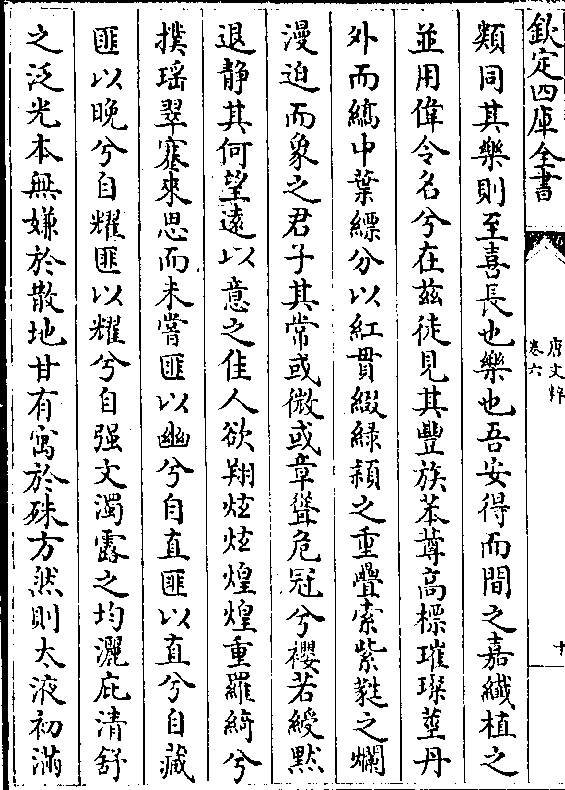 欽定四庫全書
唐文粹
卷六
十
類同其樂則至喜長也樂也吾安得而間之嘉纖植之
並用偉令名兮在兹徒見其豐族苯䔿高標璀璨莖丹
外而縞中葉縹分以紅貫綴緑颖之重疊索紫蕤之爛
漫迫而象之君子其常或微或章聳危冠兮襹若綬黙
退静其何望逺以意之佳人欲翔炫炫煌煌重羅綺兮
撲瑶翠蹇來思而未嘗匪以幽兮自直匪以直兮自藏
匪以晚兮自耀匪以耀兮自强文濁露之均灑庇清舒
之泛光本無嫌於散地甘有寓於殊方然則太液初滿